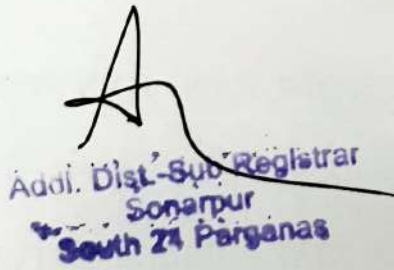 Addl. Dist.-Sub Registrar
Sonarpur
South 24 Parganas